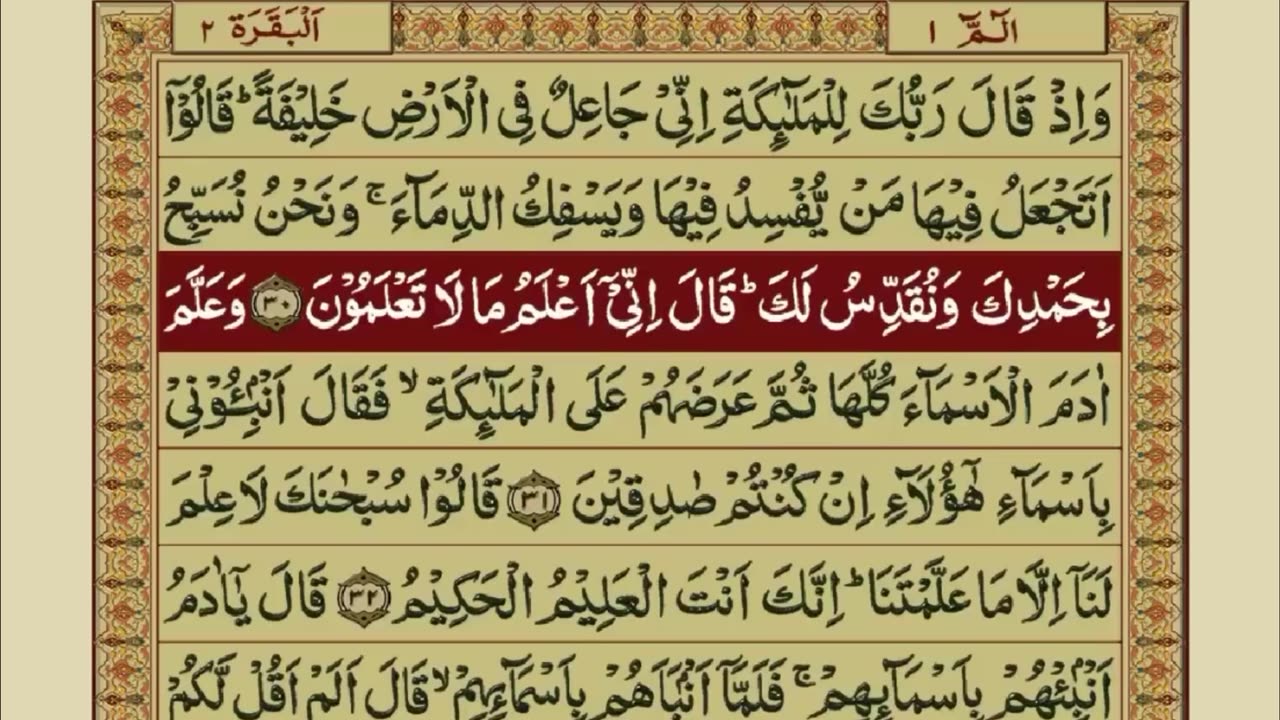 الٓمّٓ ١
اَلْبَقَرَة ٢
وَاِذْ قَالَ رَبُّكَ لِلْمَلٰٓئِكَةِ اِنِّىْ جَاعِلٌ فِى الْاَرْضِ خَلِيْفَةًؕ قَالُوْٓا
اَتَجْعَلُ فِيْهَا مَنْ يُّفْسِدُ فِيْهَا وَيَسْفِكُ الدِّمَآءَۚ وَنَحْنُ نُسَبِّحُ
بِحَمْدِكَ وَنُقَدِّسُ لَكَؕ قَالَ اِنِّىْٓ اَعْلَمُ مَا لَا تَعْلَمُوْنَ ٣٠ وَعَلَّمَ
اٰدَمَ الْاَسْمَآءَ كُلَّهَا ثُمَّ عَرَضَهُمْ عَلَى الْمَلٰٓئِكَةِۙ فَقَالَ اَنْۢبِـُٔوْنِىْ
بِاَسْمَآءِ هٰٓؤُلَآءِ اِنْ كُنْتُمْ صٰدِقِيْنَ ٣١ قَالُوْا سُبْحٰنَكَ لَا عِلْمَ
لَنَآ اِلَّا مَا عَلَّمْتَنَاؕ اِنَّكَ اَنْتَ الْعَلِيْمُ الْحَكِيْمُ ٣٢ قَالَ يٰٓاٰدَمُ
اَنْۢبِئْهُمْ بِاَسْمَآئِهِمْۚ فَلَمَّآ اَنْۢبَاَهُمْ بِاَسْمَآئِهِمْۙ قَالَ اَلَمْ اَقُلْ لَّكُمْ